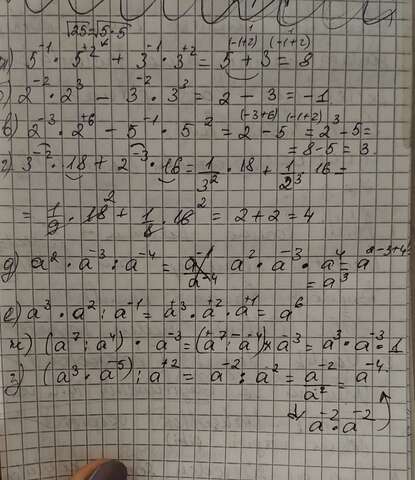 √25=√5·5
(-1+2) (-1+2)
а) 5⁻¹ · 5⁺² + 3⁻¹ · 3⁺² = 5 + 3 = 8
б) 2⁻² · 2³ - 3⁻² · 3³ = 2 - 3 = -1
в) 2⁻³ · 2⁺⁶ - 5⁻¹ · 5² = 2⁽⁻³⁺⁶⁾ - 5⁽⁻¹⁺²⁾ = 2³ - 5 =
= 8-5 = 3
г) 3⁻² · 18 + 2⁻³ · 16 = 1/3² · 18 + 1/2³ · 16 =
= 1/9 · 18² + 1/8 · 16² = 2 + 2 = 4
д) a² · a⁻³ : a⁻⁴ = a² · a⁻³ · a⁴ = a²⁻³⁺⁴
= a³
е) a³ · a² : a⁻¹ = a⁺³ · a⁺² · a⁺¹ = a⁶
ж) (a⁷ : a⁴) · a⁻³ = (a⁺⁷ · a⁻⁴) · a⁻³ = a³ · a⁻³ = 1
з) (a³ · a⁻⁵) : a⁺² = a⁻² : a² = a⁻²/a² = a⁻⁴
a⁻² · a⁻²